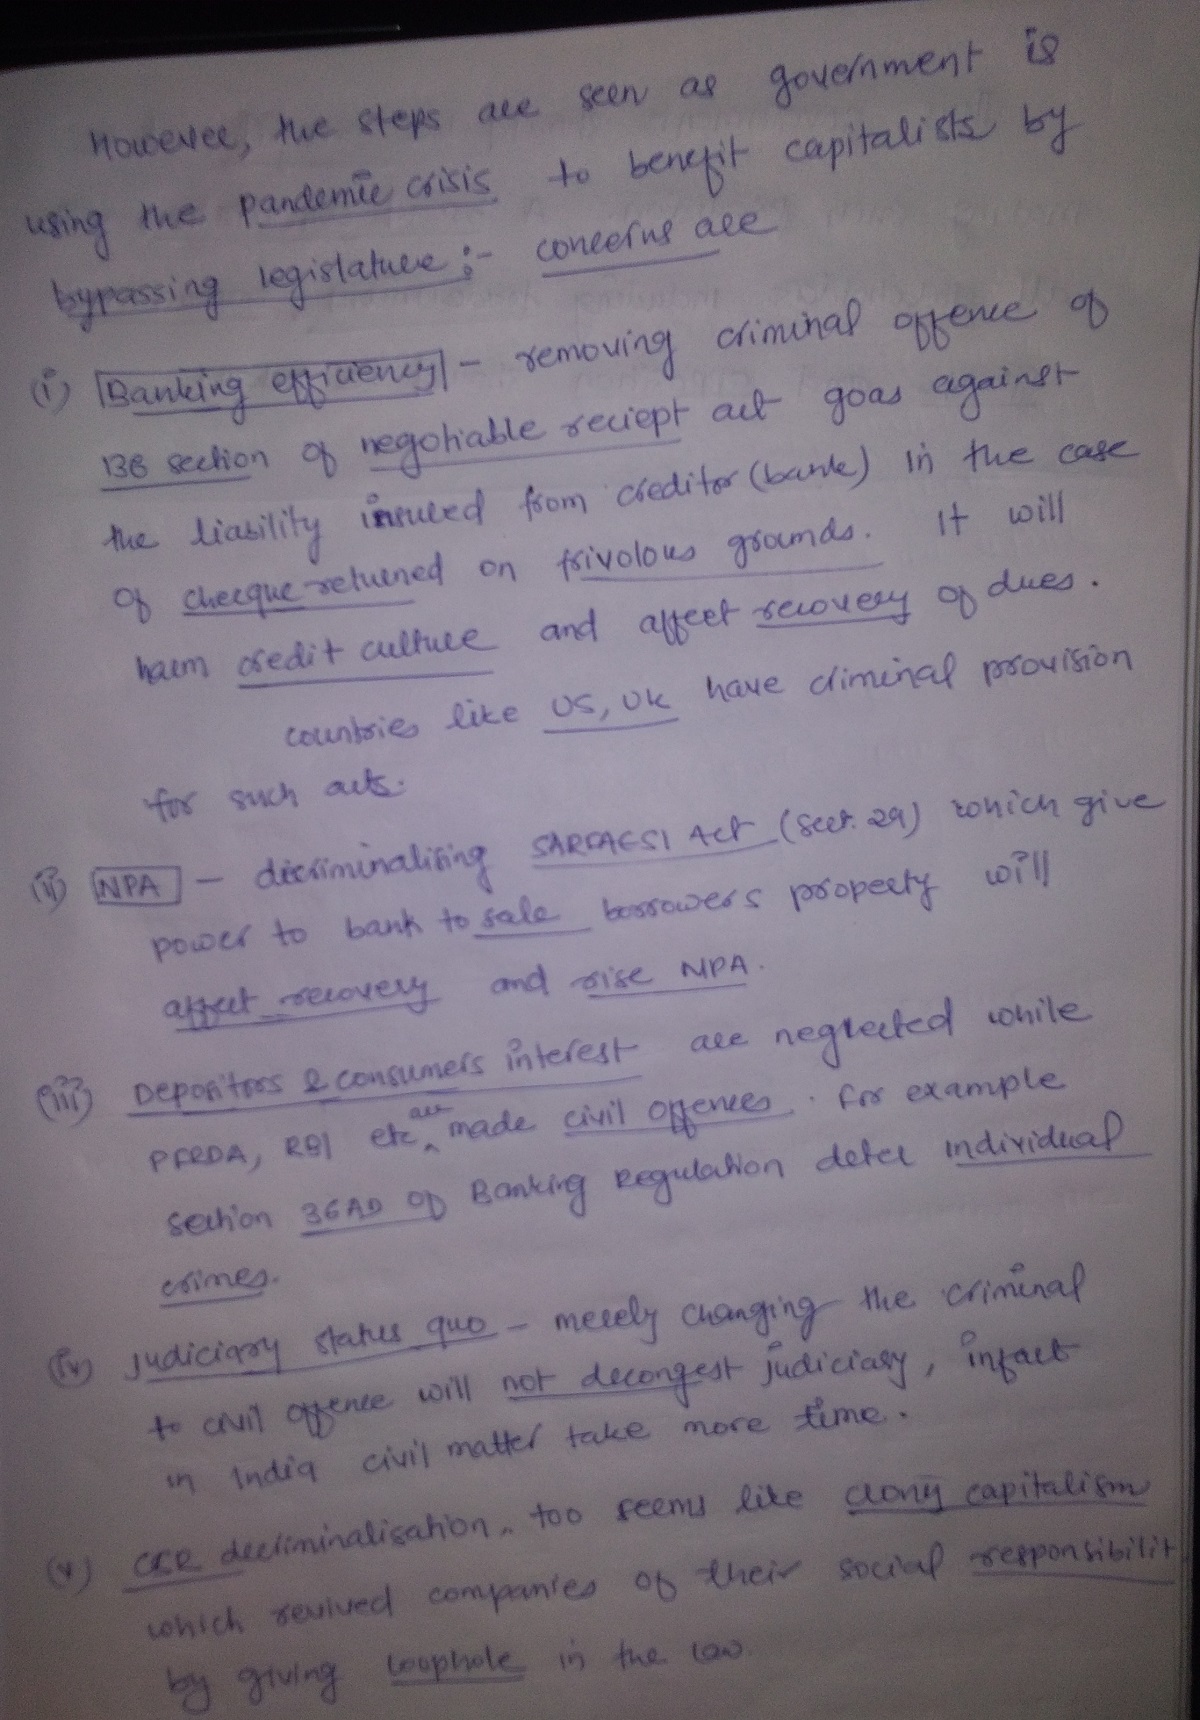 However, the steps are seen as government is
using the pandemic crisis to benefit capitalists by
bypassing legislature :- concerns are
(i) Banking efficiency - removing criminal offence of
138 section of negotiable reciept act goas against
the liability insured from creditor (bank) in the case
of cheeque returned on frivolous grounds. It will
harm credit culture and affect recovery of dues.
countries like US, UK have criminal provision
for such acts.
(ii) NPA - decriminalising SARFAESI Act (Sect. 29) which give
power to bank to sale borrowers property will
affect recovery and rise NPA.
(iii) Depositors & consumers interest are neglected while
PFRDA, RBI etc are made civil offences. For example
section 36AD of Banking Regulation deter individual
crimes.
(iv) Judiciary status quo - merely changing the criminal
to civil offence will not decongest judiciary, infact
in India civil matter take more time.
(v) CSR decriminalisation, too seems like crony capitalism
which revived companies of their social responsibilit
by giving loophole in the law.